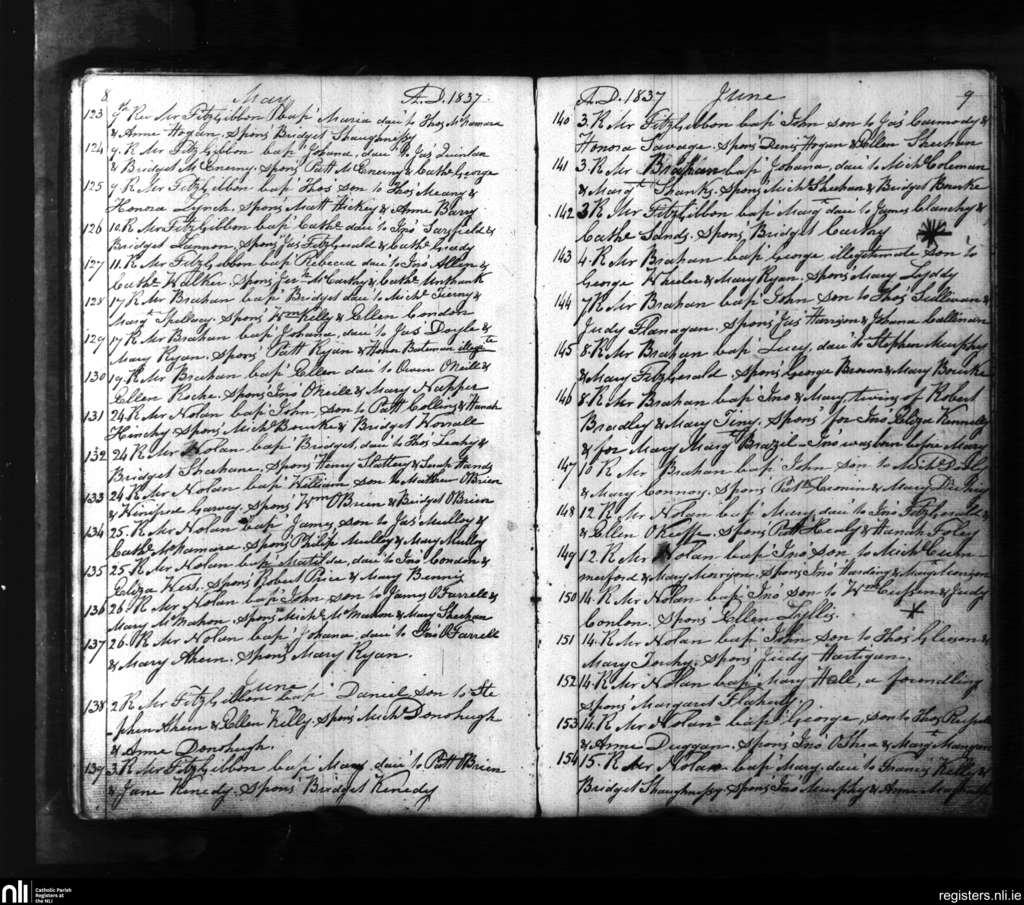 8 May A.D. 1837
123 9th Rev Mr FitzGibbon bapd Maria daur to Thos McNamara
& Anne Hogan. Sponrs Bridget Shaughnessy
124 9. R Mr FitzGibbon bapd Johana, daur to Jas Quinlan
& Bridget McEnerny. Sponrs Patt McEnerny & Cathe George
125 9 R Mr FitzGibbon bapd Thos son to Thos Meany &
Honora Lynch. Sponrs Matt Hickey & Anne Barry
126 10. R Mr FitzGibbon bapd Cathe daur to Jno Sarsfield &
Bridget Lannon. Sponrs Jas FitzGerald & Cathe Grady
127 11. R Mr FitzGibbon bapd Rebecca daur to Jno Allen &
Cathe Walker. Sponrs McCarthy & Cathe Unthank
128 17 R Mr Brahan bapd Bridget daur to Michl Tierny &
Margt Spellacy. Sponrs Wm Kelly & Ellen Condon
129 17 R Mr Brahan bapd Johana, daur to Jas Doyle &
Mary Ryan. Sponrs Patt Ryan & Honor Bateman illegte
130 19. R Mr Brahan bapd Ellen daur to Owen O'Neill &
Ellen Roche. Sponrs Jno O'Neill & Mary Napper
131 24. R Mr Nolan bapd John son to Patt Collins & Hanah
Hinchy Sponrs Michl Bourke & Bridget Worrall
132 24 R Mr Nolan bapd Bridget, daur to Thos Leahy &
Bridget Shahane. Sponrs Henry Slattery & Sands
133 24. R Mr Nolan bapd William son to Matthew O'Brien
& Winifred Garvey. Sponrs Wm O'Brien & Bridget O'Brien
134 25. R Mr Nolan bapd James son to Jas Mulloy &
Cathe McNamara. Sponrs Philip Mulloy & Mary Mulloy
135 25. R Mr Nolan bapd Matilda, daur to Jno Conden &
Eliza West. Sponrs Robert Price & Mary Bennis
136 26 R Mr Nolan bapd John son to James O'Farrell &
Mary McMahon. Sponrs Michl McMahon & Mary Sheehan
137 26. R Mr Nolan bapd Johana daur to Jas O'Farrell
& Mary Ahern. Sponrs Mary Ryan.
June
138 2 R Mr FitzGibbon bapd Daniel son to Ste
-phen Ahern & Ellen Kelly. Sponrs Michl Donohugh
& Anne Donohugh.
139 3. R Mr FitzGibbon bapd Mary daur to Patt O'Brien
& Jane Kenedy. Sponrs Bridget Kenedy
A.D. 1837 June 9
140 3. R Mr FitzGibbon bapd John son to Jas Carmody &
Honora Savage. Sponrs Denis Hogan & Ellen Sheehan
141 3. R Mr Brahan bapd Johana, daur to Michl Coleman
& Margt Shanks. Sponrs Michl Sheehan & Bridget Bourke
142 3 R Mr FitzGibbon bapd Margt daur to James Clanchy &
Cathe Sands. Sponrs Bridget Carthy
143 4. R Mr Brahan bapd George illegitimate son to
George Wheeler & Mary Ryan. Sponrs Mary Lyddy
144 7 R Mr Brahan bapd John son to Thos Sullivan &
Judy Flanagan. Sponrs Jas Harrison & Johana Callinan
145 8. R Mr Brahan bapd Lucy, daur to Stephen Murphy
& Mary FitzGerald. Sponrs George Brown & Mary Bourke
146 8 R Mr Brahan bapd Jno & Mary, twins of Robert
Bradley & Mary Tiny. Sponrs for Jno Eliza Kennelly
& for Mary Margt Brazil - Jno was born before Mary
147 10 R Mr Brahan bapd John son to Michl
& Mary Connoy. Sponrs Patt Cronin & Mary Dickey
148 12 R Mr Nolan bapd Mary daur to Jno FitzGerald &
Ellen O'Keeffe. Sponrs Patt Healy & Hanah Foley
149 12. R Mr Nolan bapd Jno son to Michl Cum-
merford & Mary Morrison. Sponrs Jno Harding & Margt
150 14. R Mr Nolan bapd Jno son to Wm & Judy
Conlon. Sponrs Ellen Lillis.
151 14. R Mr Nolan bapd John son to Thos Gleeson &
Mary Torchy. Sponrs Judy Hartigan.
152 14. R Mr Nolan bapd Mary Hall, a foundling
Sponrs Margaret Flaherty
153 14. R Mr Nolan bapd George, son to Thos
& Anne Duggan. Sponrs Jno O'Shea & Margt Mangan
154 15. R Mr Nolan bapd Mary daur to Francis Kelly &
Bridget Shaughnessy. Sponrs Jno Murphy & Anne
nli Catholic Parish
Registers at
the NLI
registers.nli.ie